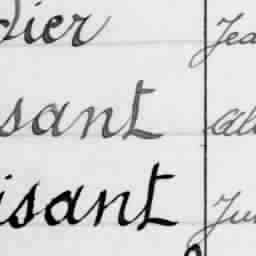 dier Jea
sant Al
isant Ju